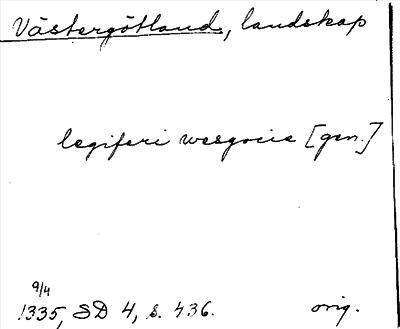 Västergötland, landskap
legiferi wesgocie [gen.]
9/4
1335, SD 4, s. 436. orig.